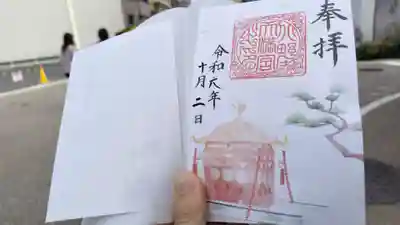 奉拝
令和六年
十月二日